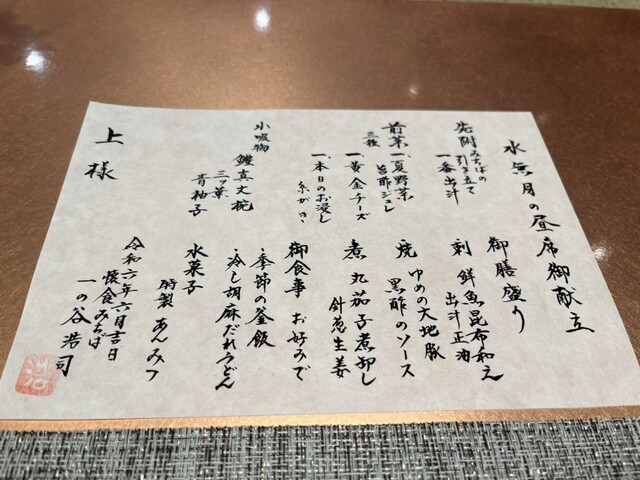 水無月の昼席御献立
先附 みちばの
引き立て
一番出汁
前菜 三種
一、夏野菜
旨酢ジュレ
一、黄金チーズ
一、本日のお浸し
糸がき
小吸物
鱧真丈椀
三ツ葉
青柚子
御膳盛り
刺 鮮魚昆布和え
出汁正油
焼 ゆめの大地豚
黒酢のソース
煮 丸茄子煮卸し
針葱生姜
御食事 お好みで
・季節の釜飯
・冷し胡麻だれうどん
水菓子
特製 あんみつ
令和六年六月吉日
懐食みちば
一の谷浩司
上様